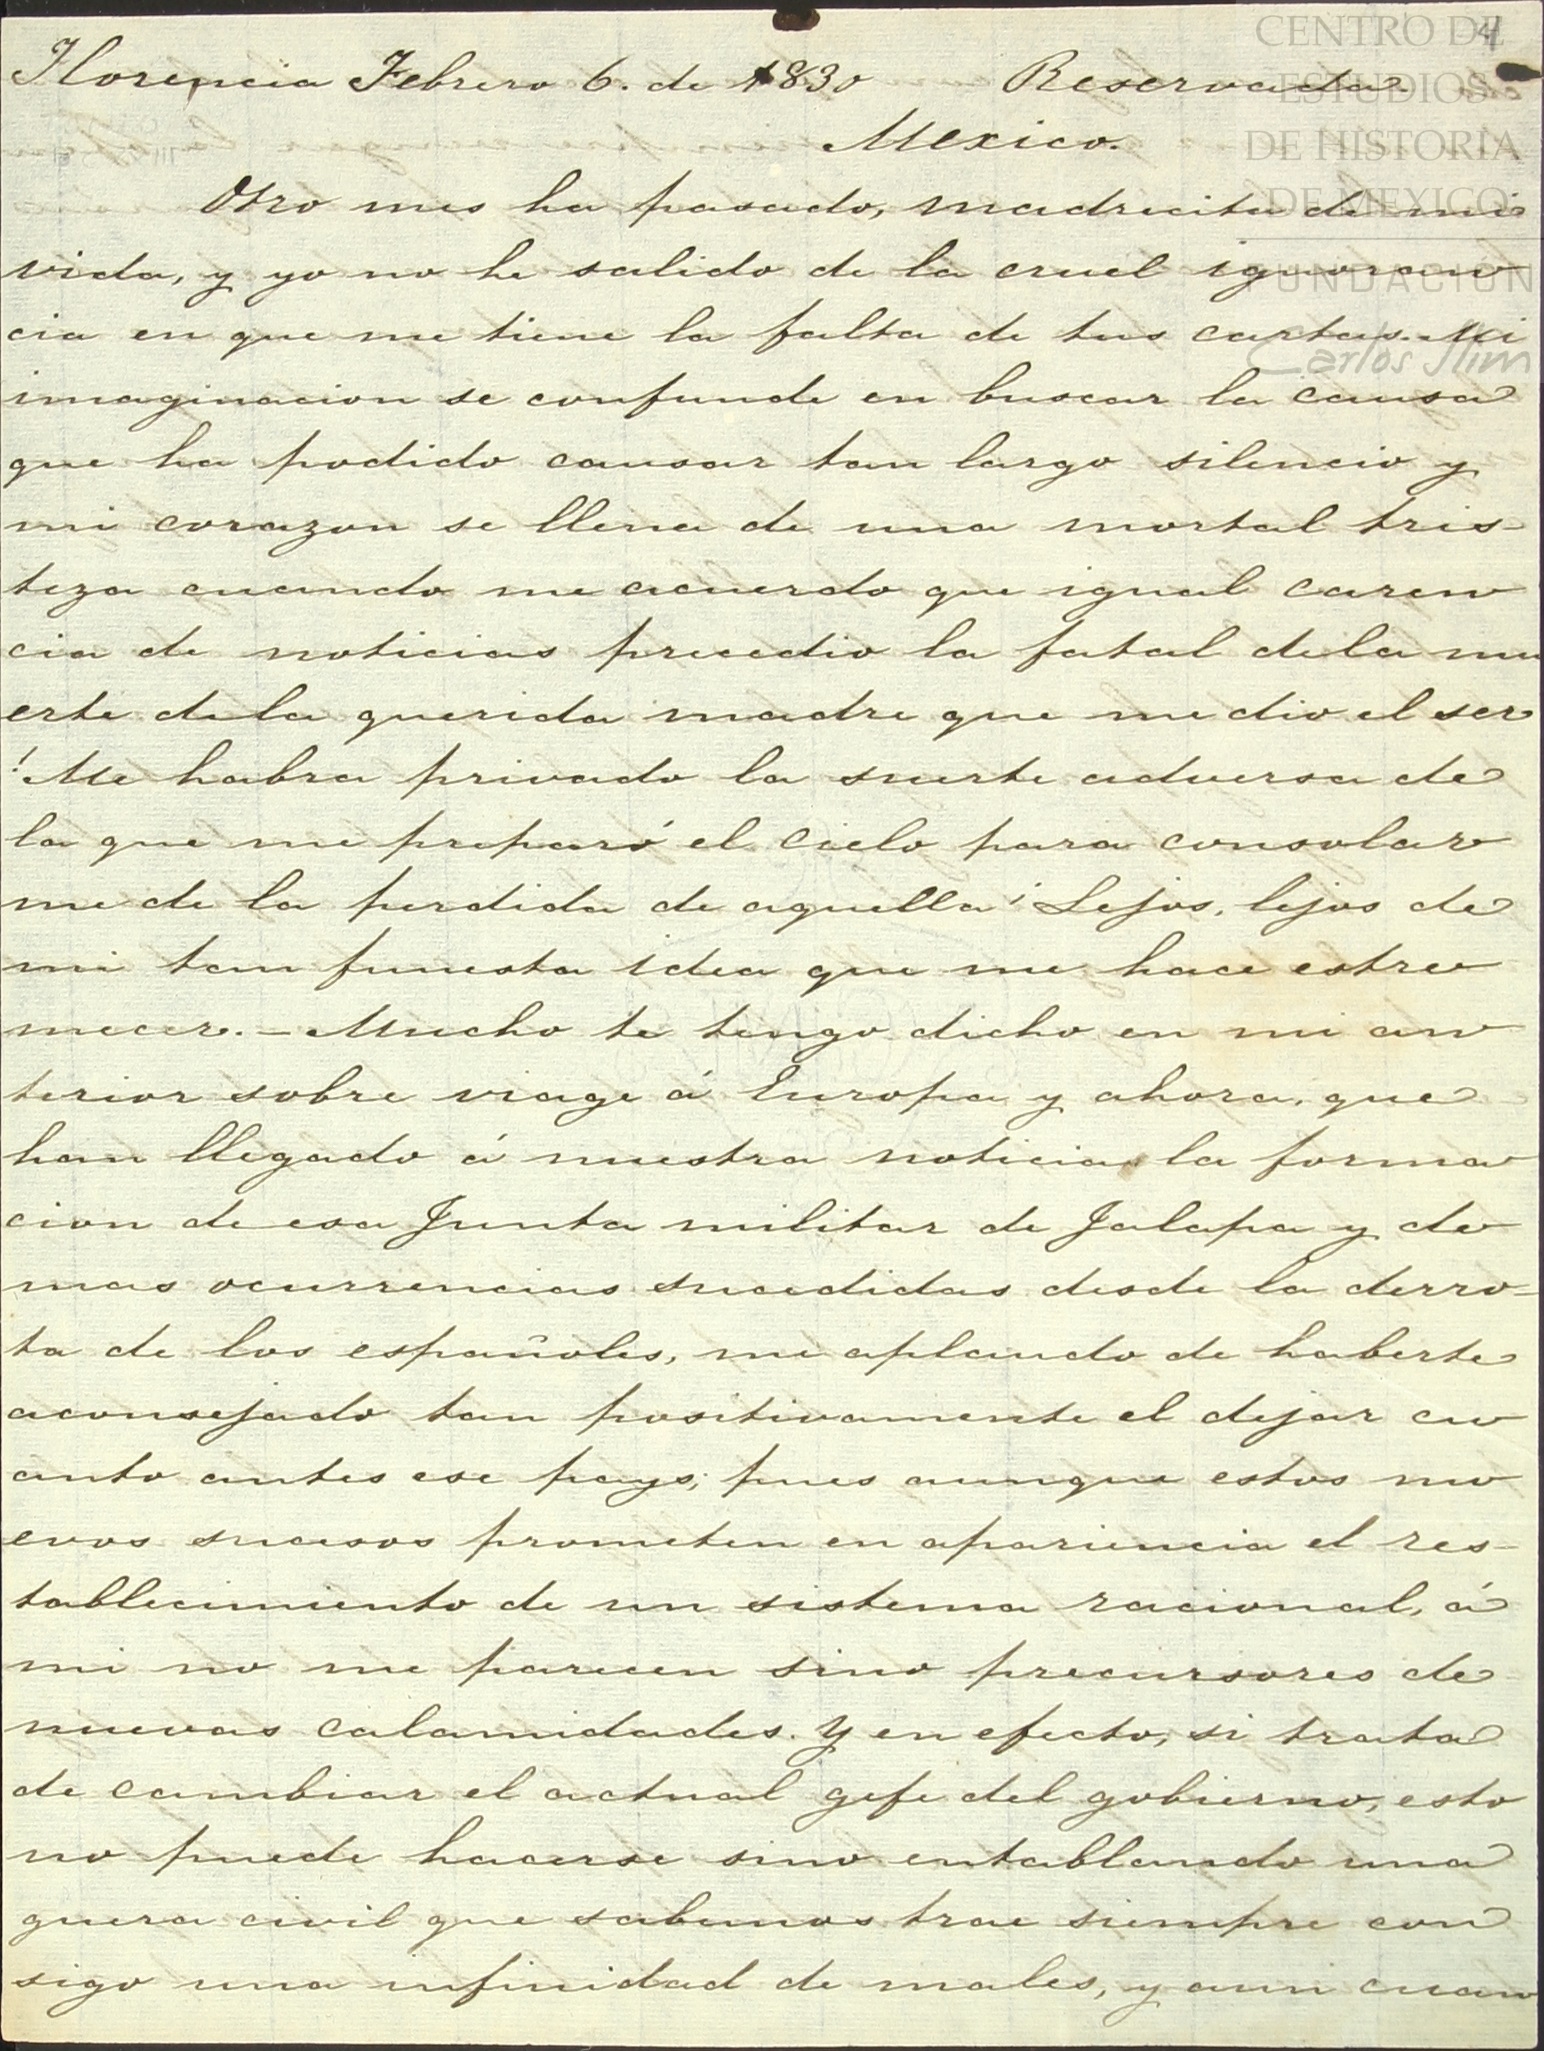 41
CENTRO DE
ESTUDIOS
DE HISTORIA
DE MEXICO
FUNDACIÓN
Carlos Slim
Florencia Febrero 6. de 1830 Reservada.
Mexico.
Otro mes ha pasado, madrecita de mi
vida, y yo no he salido de la cruel ignoran
cia en que me tiene la falta de tus cartas. Mi
imaginacion se confunde en buscar la causa
que ha podido causar tan largo silencio y
mi corazon se llena de una mortal tris-
teza cuando me acuerdo que igual caren
cia de noticias precedio la fatal dela mu
erte dela querida madre que me dio el ser
! Me habra privado la suerte adversa de
la que me preparó el cielo para consolar
me de la perdida de aquella ¡ Lejos, lejos de
mi tan funesta idea que me hace estre
mecer. - Mucho te tengo dicho en mi an
terior sobre viage á Europa y ahora, que
han llegado á nuestra noticia la forma
cion de esa Junta militar de Jalapa y de
mas ocurrencias sucedidas desde la derro-
ta de los españoles, me aplaudo de haberte
aconsejado tan positivamente el dejar cu
anto antes ese pays; pues aunque estos nu
evos sucesos prometen en apariencia el res-
tablecimiento de un sistema racional, á
mi no me parecen sino precursores de
nuevas calamidades. Y en efecto, si trata
de cambiar el actual gefe del gobierno, esto
no puede hacerse sino entablando una
guera civil que sabemos trae siempre con
sigo una infinidad de males, y aun cuan